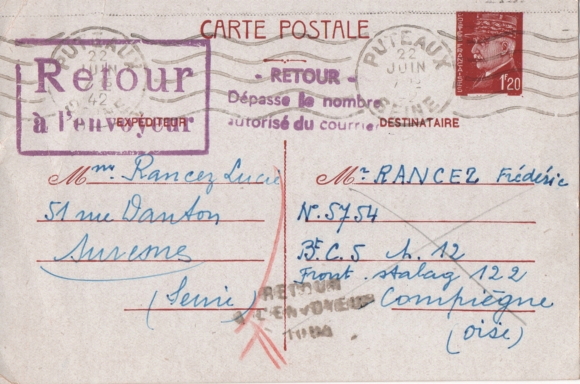 CARTE POSTALE
PUTEAUX
22
JUIN
42
Retour
à l'envoyeur
- RETOUR -
Dépasse le nombre
autorisé du courrier
PUTEAUX
22
JUIN
SEINE
1f20
EXPÉDITEUR
DESTINATAIRE
Mme Rancez Lucie
51 rue Danton
Suresnes
(Seine)
Mr RANCEZ Frédéric
N. 5754
Bt C. 5 h. 12
Front stalag 122
Compiègne
(oise)
RETOUR
A L'ENVOYEUR